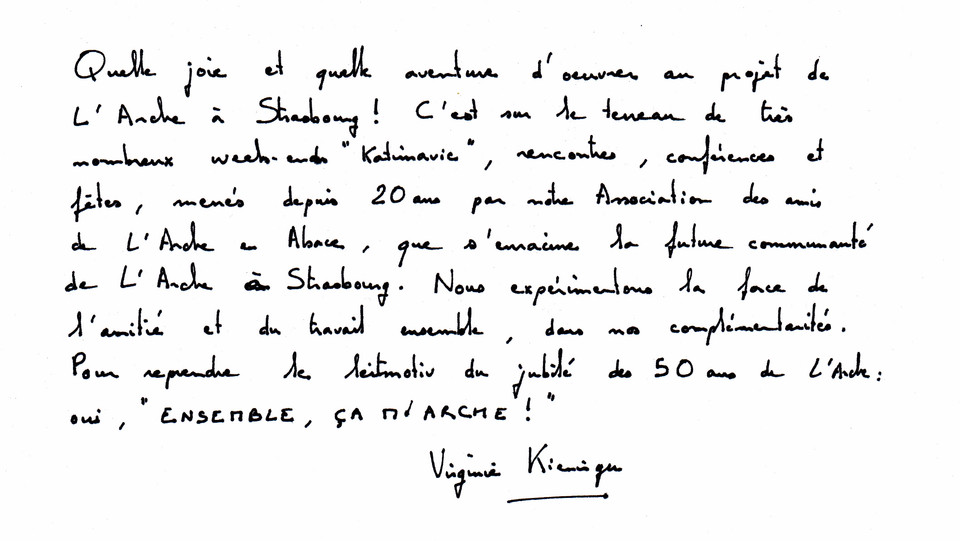 Quelle joie et quelle aventure d'oeuvrer au projet de
L'Arche à Strasbourg ! C'est sur le terreau de très
nombreux week-ends "Katimavic", rencontres, conférences et
fêtes, menés depuis 20 ans par notre Association des amis
de L'Arche en Alsace, que s'enracine la future communauté
de L'Arche à Strasbourg. Nous expérimentons la force de
l'amitié et du travail ensemble, dans nos complémentarités.
Pour reprendre le leitmotiv du jubilé des 50 ans de L'Arche :
oui, "ENSEMBLE, ÇA M'ARCHE !"
Virginie